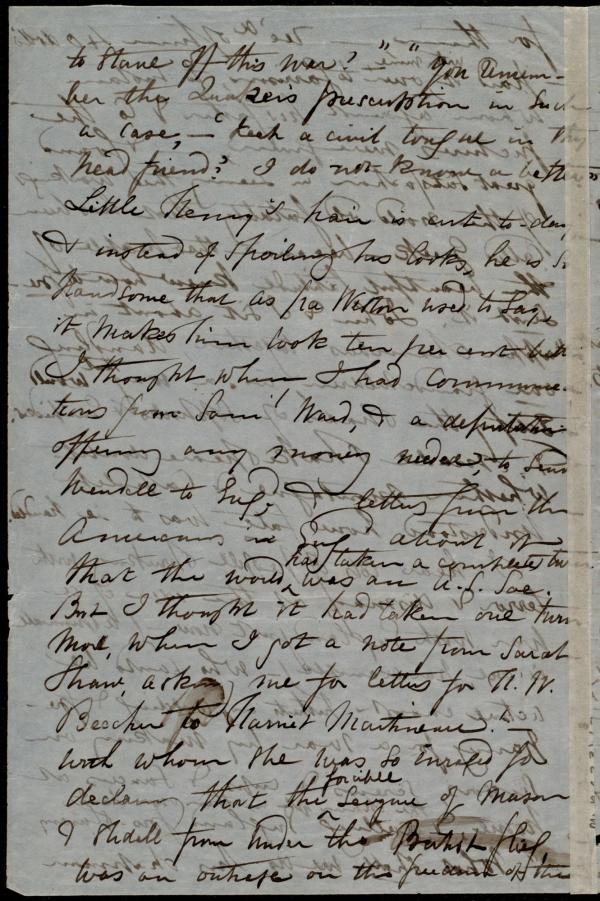 to stave off this war?" "You remem-
ber the Quaker's prescription in such
a case, — 'Keep a civil tongue in thy
head friend'? I do not know a better
Little Henry's hair is cut to-day
& instead of spoiling his looks, he is so
handsome that as pa Weston used to say
it makes him look ten per cent
I thought when I had communica-
tions from Sam'l Ward, & a deputation
offering any money needed, to send
Wendell to Eng'd & letters from the
Americans in Eng about it
had
that the world was an A.S. Soc.
taken a complete
But I thought it had taken one turn
more, when I got a note from Sarah
Shaw, asking me for letters for H. W.
Beecher to Harriet Martineau! —
with whom she was so enraged for
forcible
declaring that the seizure of Mason
& Slidell from under the British flag,
was an outrage on the freedom of the